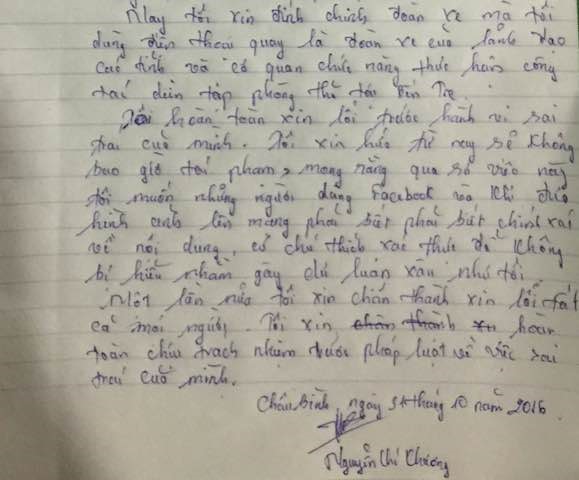 Nay tôi xin đính chính đoàn xe mà tôi
dùng điện thoại quay là đoàn xe của lãnh đạo
các tỉnh và cơ quan chức năng thực hiện công
tác diễn tập phòng thủ tại Bến Tre.
Tôi hoàn toàn xin lỗi trước hành vi sai
trái của mình. Tôi xin hứa từ nay sẽ không
bao giờ tái phạm, mong rằng qua sự việc này
tôi muốn những người dùng Facebook và khi đưa
hình ảnh lên mạng phải biết phải biết chính xác
về nội dung, có chú thích xác thực để không
bị hiểu nhầm gây dư luận xấu như tôi
Một lần nữa tôi xin chân thành xin lỗi tất
cả mọi người. Tôi xin chân thành xin hoàn
toàn chịu trách nhiệm trước pháp luật về việc sai
trái của mình.
Châu Bình, ngày 31 tháng 10 năm 2016
Nguyễn Chí Chương